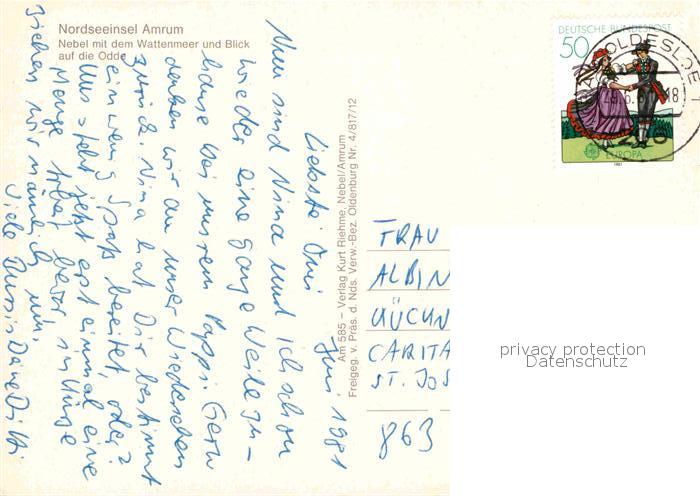 Nordseeinsel Amrum
Nebel mit dem Wattenmeer und Blick
auf die Odde
DEUTSCHE BUNDESPOST
50
EUROPA
1981
Juni 1981
Liebste Omi
Nun sind Nina und ich schon
wieder eine ganze Weile zu-
hause bei unserem Pappi. Gern
denken wir an unser Wiedersehen
zurück. Nina hat Dir bestimmt
ein wenig Spaß bereitet, oder?
Uns steht jetzt erst einmal eine
Menge Arbeit bevor, in Kürze
ziehen wir nämlich um.
Viele Bussis Deine
Am 585 – Verlag Kurt Riehme, Nebel/Amrum
Freigeg. v. Präs. d. Nds. Verw.-Bez. Oldenburg Nr. 4/817/12
FRAU
ALBIN
CARITA
ST. JOS
863
privacy protection
Datenschutz